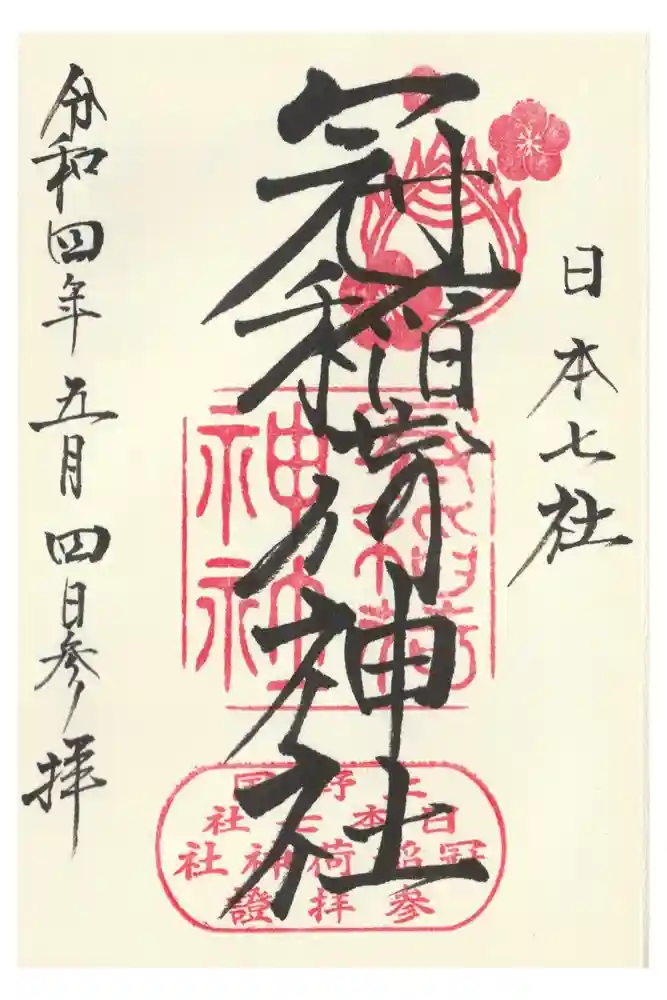 日本七社
冠稲荷神社
令和四年五月四日参拝
冠稲荷
神社
上野国
日本七社
冠稲荷神社
参拝證